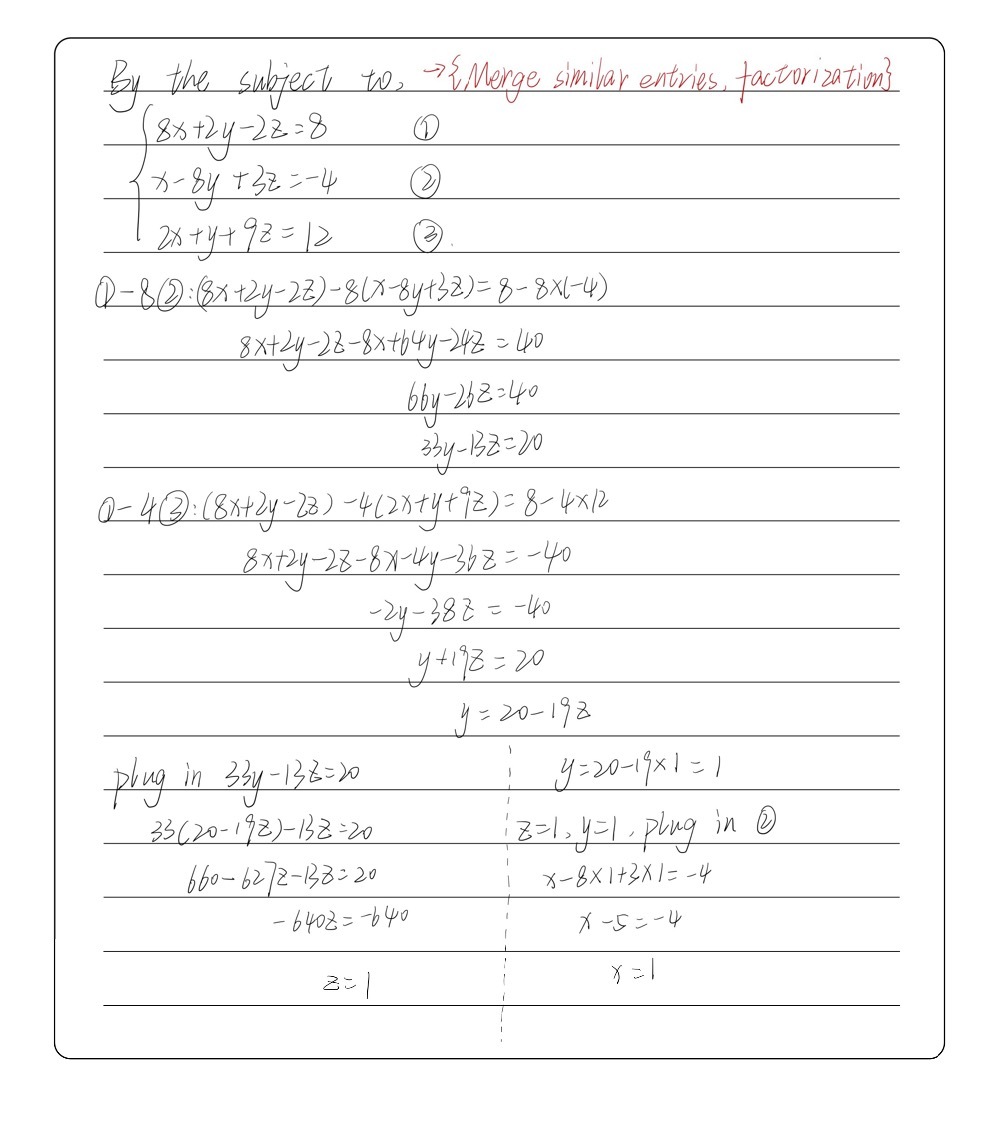 By the subject to, →{Merge similar entries, factorization}
8x+2y-2z=8 ①
x-8y+3z=-4 ②
2x+y+9z=12 ③.
①-8②:(8x+2y-2z)-8(x-8y+3z)=8-8×(-4)
8x+2y-2z-8x+64y-24z=40
66y-26z=40
33y-13z=20
①-4③:(8x+2y-2z)-4(2x+y+9z)=8-4×12
8x+2y-2z-8x-4y-36z=-40
-2y-38z=-40
y+19z=20
y=20-19z
plug in 33y-13z=20
33(20-19z)-13z=20
660-627z-13z=20
-640z=-640
z=1
y=20-19×1=1
z=1, y=1, plug in ②
x-8×1+3×1=-4
x-5=-4
x=1